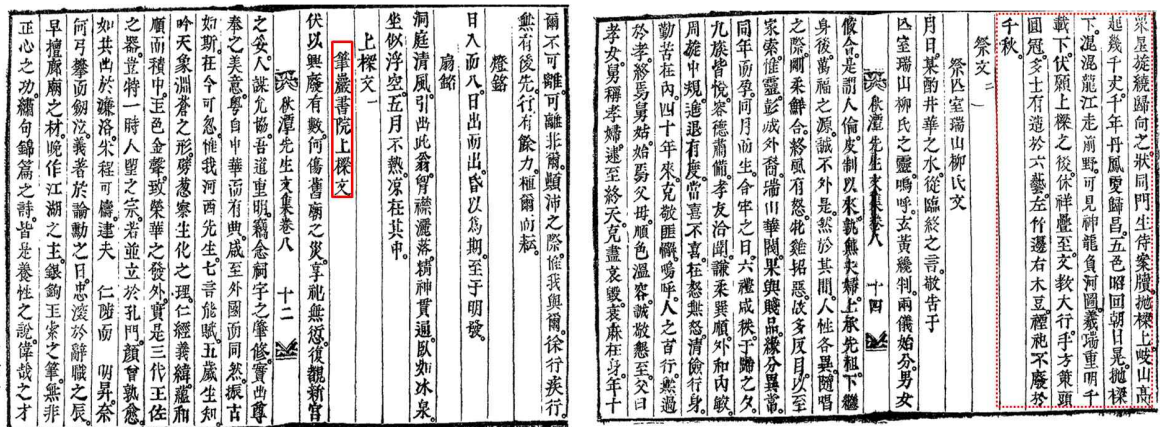 爾不可離可離非爾顚沛之際惟我與爾徐行疾行
無有後先行有餘力植爾而耘
燈銘
日入而入日出而出昏以爲期至于明發
扇銘
洞庭淸風引出此翁胷襟灑落精神貫通臥如冰泉
坐似浮空五月不熱凉在其中
上樑文
筆巖書院上樑文
伏以興廢有數何傷舊廟之災享祀無愆復覩新宮
秋潭先生文集卷八 十二
之妥人謀允協吾道重明竊念祠宇之肇修實出尊
奉之美意粤自中華而有典咸至外國而同然振古
如斯在今可忽惟我河西先生七言能賦五歲生知
吟天象淵蒼之形劈葱察生化之理仁經義緯蘊和
順而積中玉色金聲致榮華之發外實是三代王佐
之器豈特一時人望之宗若並立於孔門顔曾孰愈
如共出於濂洛朱程可儔逮夫 仁陛而 明昇奈
何弓攀而劒泣義著於論勳之日忠深於辭職之辰
早擅廊廟之材晩作江湖之主銀鉤玉索之筆無非
正心之功繡句錦篇之詩皆是養性之說偉哉之才
梁星旋繞歸向之狀同門生侍案牘抛樑上岐山高
起幾千丈千年丹鳳夏歸昌五色昭回朝日晃抛樑
下混混龍江走前野可見神龍負河圖羲瑞重明千
載下伏願上樑之後休祥疊至文教大行手方策頭
圓冠多士有造於六藝左竹邊右木豆禋祀不廢於
千秋
祭文
祭亡室瑞山柳氏文
月日某酌井華之水從臨終之言敬告于
亡室瑞山柳氏之靈嗚呼玄黃纔判兩儀始分男女
秋潭先生文集卷八 十四
攸合是謂人倫皮制以來孰無夫婦上承先祖下繼
身後萬福之源誠不外是然於其間人性各異隨唱
之際剛柔鮮合終風有怒牝雞招惡故多反目以至
家索惟靈彭城外裔瑞山華閥果與賤品緣分異常
同年而孕同月而生合牢之日六禮成秩于歸之夕
九族皆悅容德肅備孝友洽聞謙柔巽順外和內敏
周旋中規進退有度當喜不喜在怒無怒淸儉行身
勤苦在內四十年來克敬匪懈嗚呼人之百行無過
於孝終焉舅姑始焉父母順色溫容誠敬懇至父曰
孝女舅稱孝婦逮至終天克盡哀毀衰麻在身年十